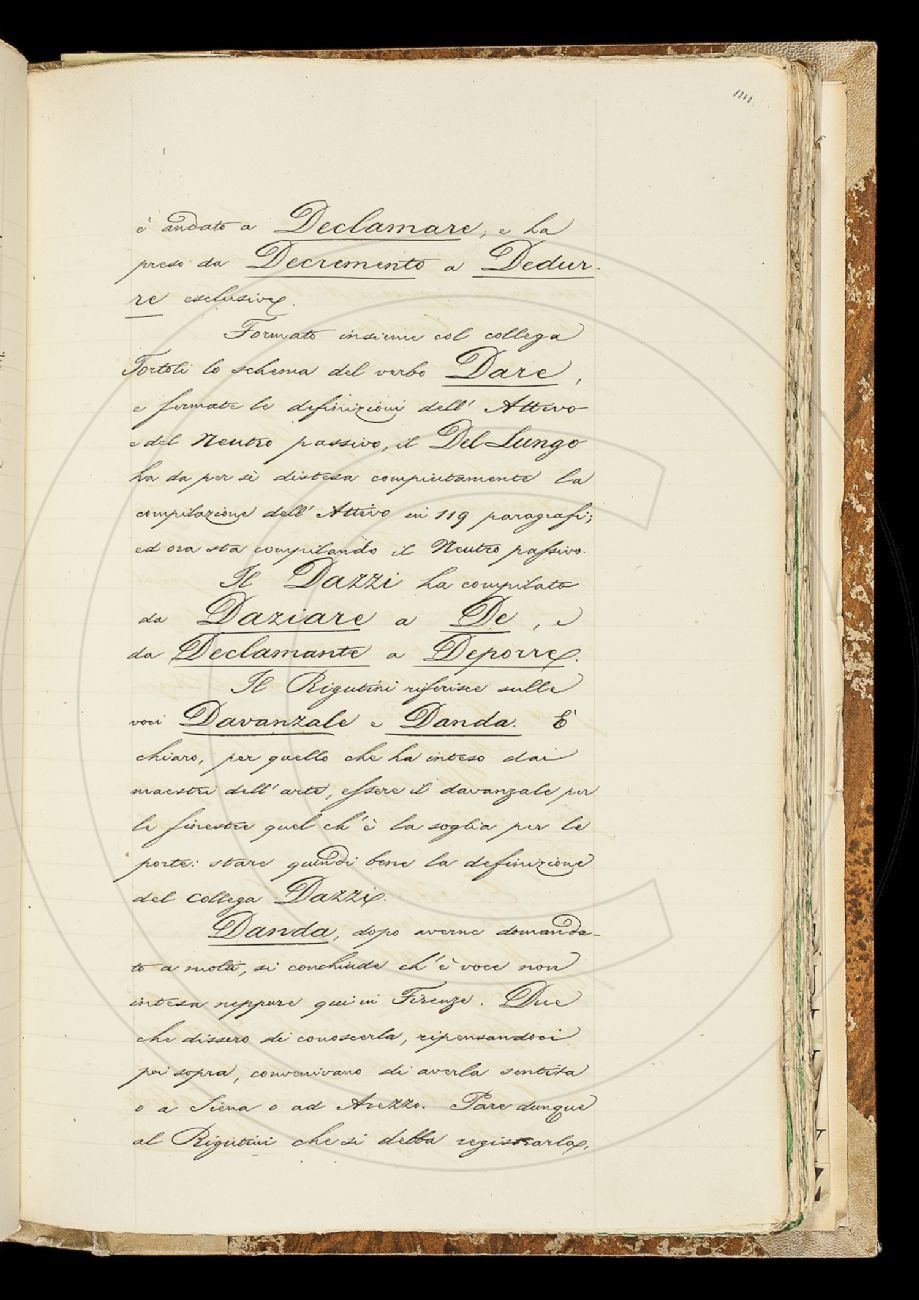 è andato a Declamare, e ha
preso da Decremento a Dedur-
re esclusive.
Formato insieme col collega
Tortoli lo schema del verbo Dare,
e fermate le definizioni dell' Attivo
e del Neutro passivo, il Del Lungo
ha da per sè distesa compiutamente la
compilazione dell' Attivo in 119 paragrafi;
ed ora sta compilando il Neutro passivo.
Il Dazzi ha compilato
da Daziare a De, e
da Declamante a Deporre.
Il Rigutini riferisce sulle
voci Davanzale e Danda. È
chiaro, per quello che ha inteso dai
maestri dell' arte, essere il davanzale per
le finestre quel ch' è la soglia per le
porte: stare quindi bene la definizione
del collega Dazzi.
Danda, dopo averne domanda-
to a molti, si conchiude ch' è voce non
intesa neppure qui in Firenze. Due
che dissero di conoscerla, ripensandoci
poi sopra, convenivano di averla sentita
o a Siena o ad Arezzo. Pare dunque
al Rigutini che si debba registrarla,